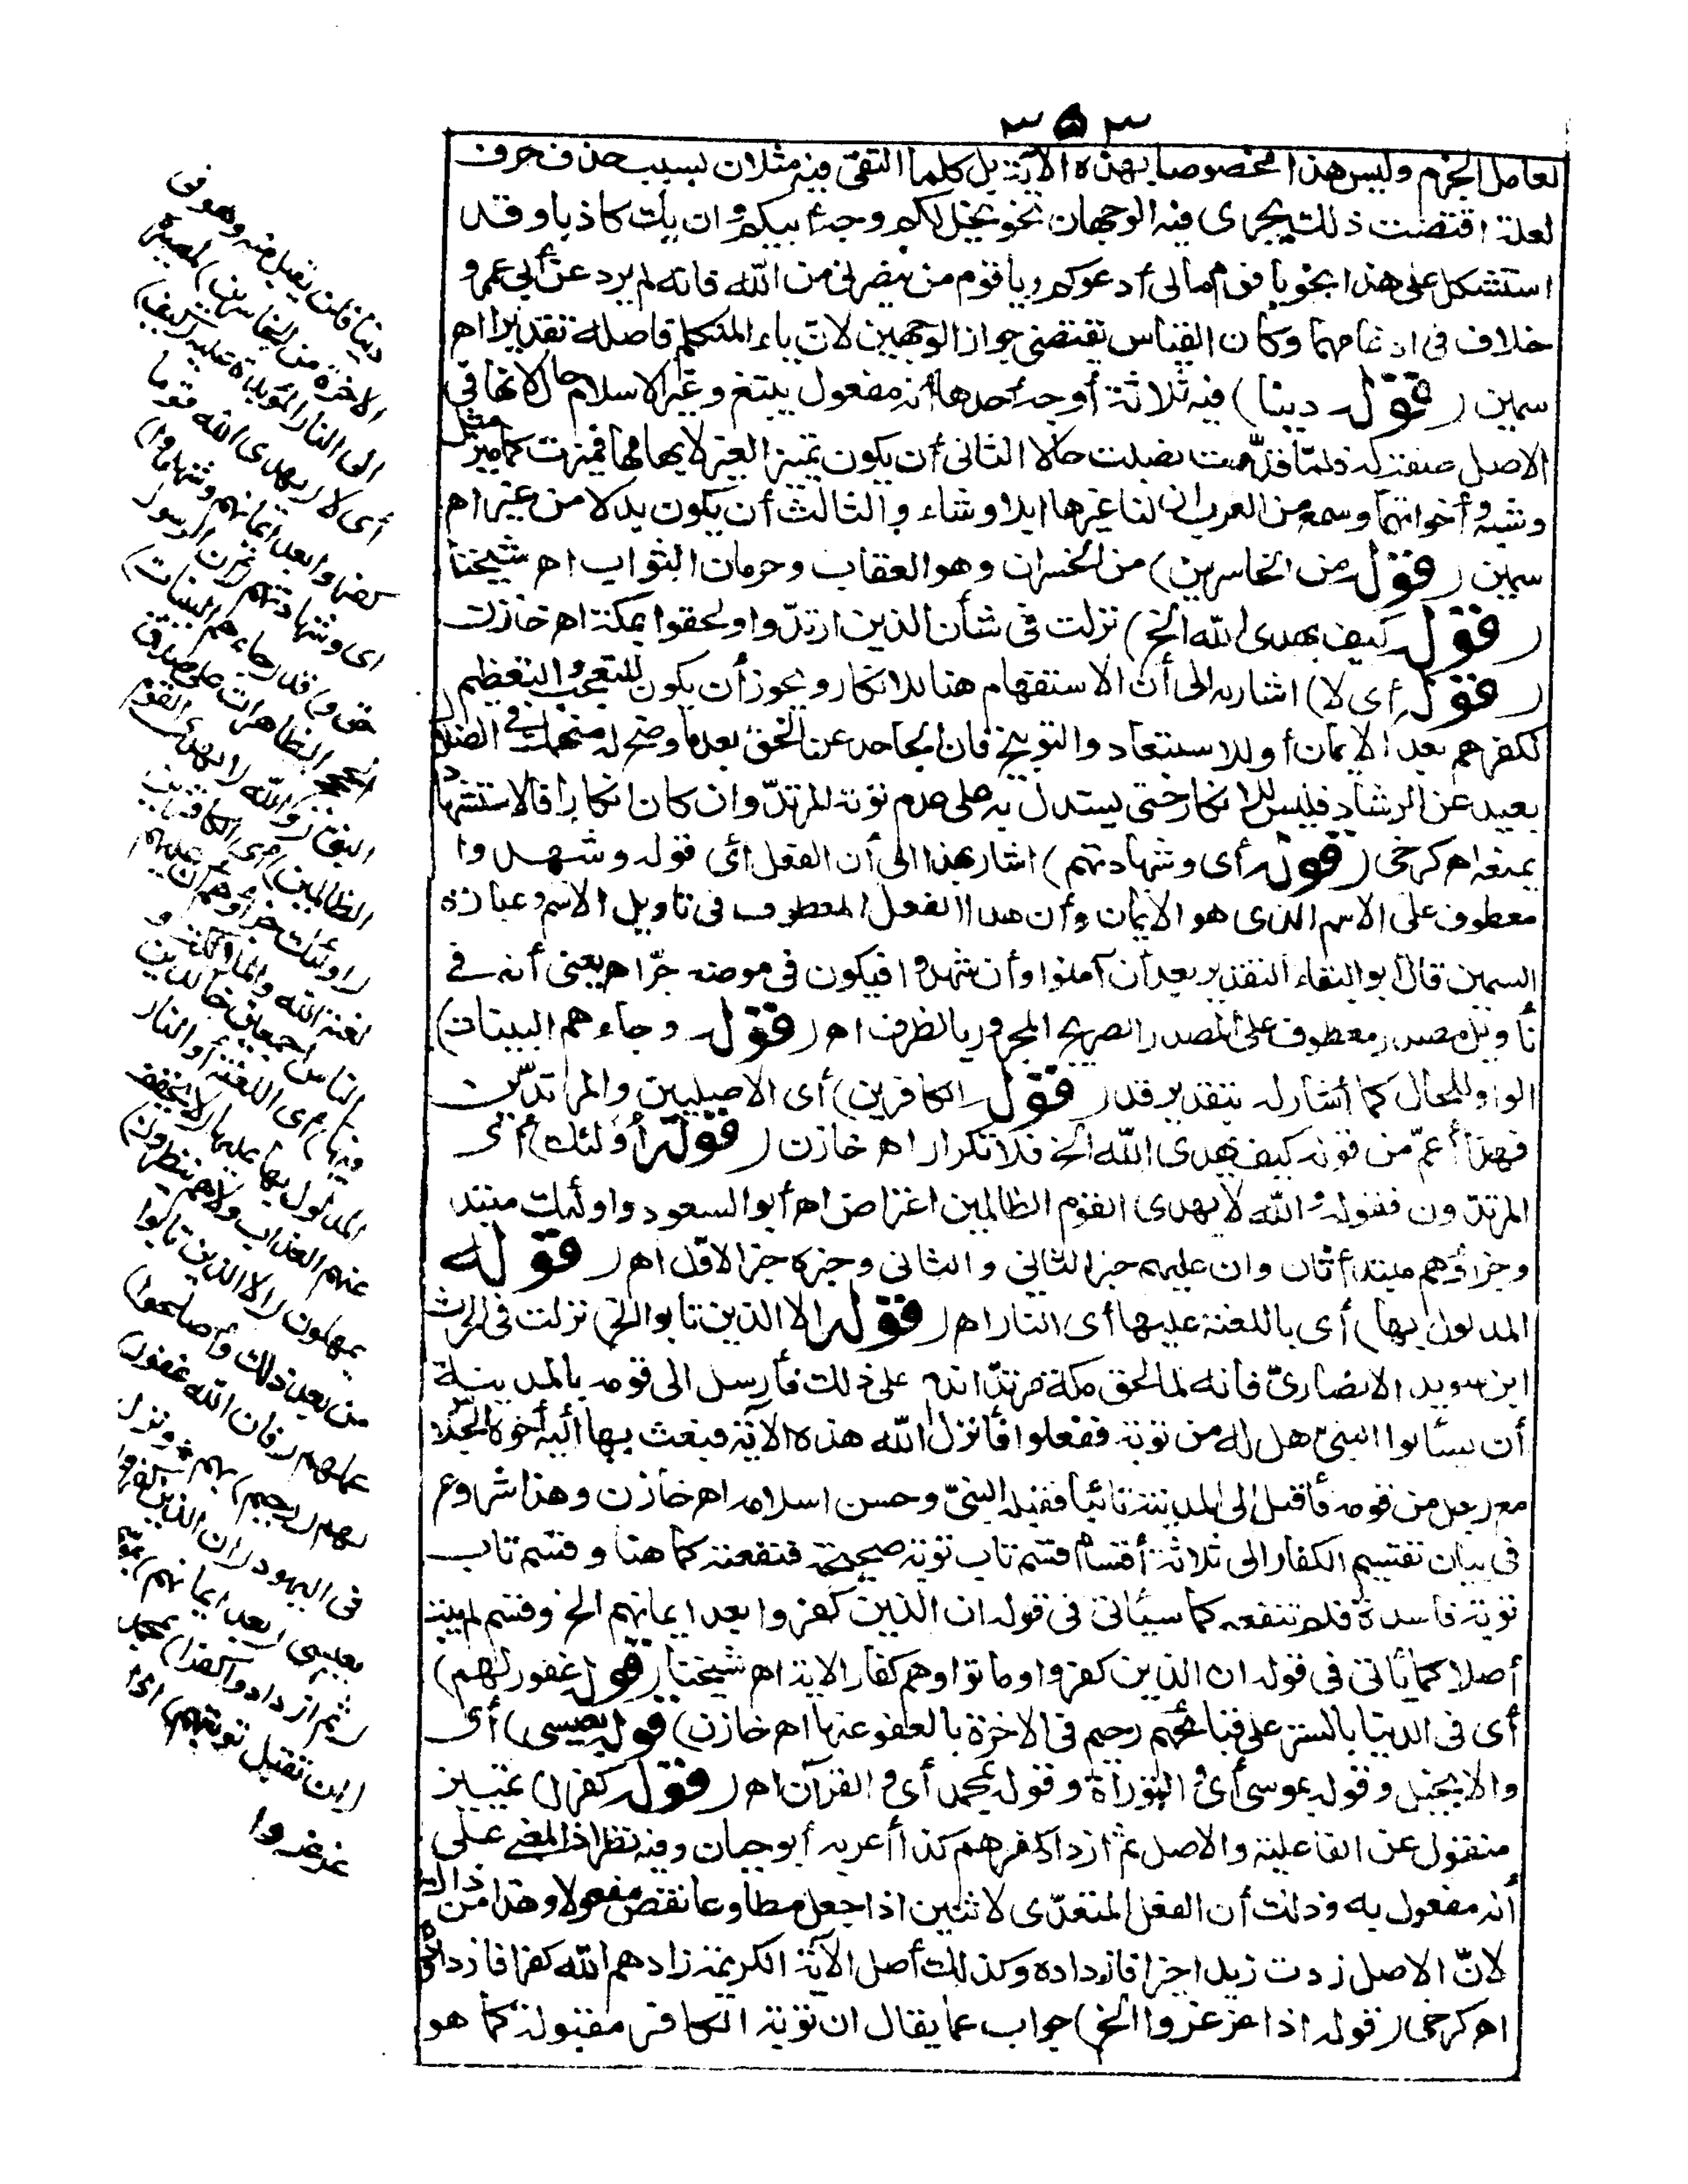 ٣٥٣
لعامل الجزم وليس هذا مخصوصا بهذه الآية بل كلما التقى فيه مثلان بسبب حذف حرف
لعلة اقتضت ذلك يجرى فيه الوجهان نحو يخل لكم وجه أبيكم وان يك كاذبا وقد
استشكل على هذا نحو يا قوم مالى أدعوكم ويا قوم من ينصرنى من الله فانه لم يرد عن أبى عمرو
خلاف فى ادغامهما وكان القياس يقتضى جواز الوجهين لان ياء المتكلم فاصلة تقديرا اه
سمين (قوله دينا) فيه ثلاثة أوجه أحدها أنه مفعول يبتغ وغير الاسلام حال لانها فى
الاصل صفة له فلما قدمت نصبت حالا الثانى أن يكون تمييزا لغير لابهامها فميزت كما ميز مثل
وشبه وأخواتهما وسمع من العرب ان لنا غيرها ابلا وشاء والثالث أن يكون بدلا من غير اه
سمين (قوله من الخاسرين) من الخسران وهو العقاب وحرمان الثواب اه شيخنا
(قوله كيف يهدى الله الخ) نزلت فى شأن الذين ارتدوا ولحقوا بمكة اه خازن
(قوله أى لا) اشار به الى أن الاستفهام هنا للانكار ويجوز أن يكون للتعجب والتعظيم
لكفرهم بعد الايمان أو للاستبعاد والتوبيخ فان الجاحد عن الحق بعد ما وضح له منهمك فى الضلال
بعيد عن الرشاد فليس للانكار حتى يستدل به على عدم توبة المرتد وان كان انكارا فالاستشهاد
يمنعه اه كرخى (قوله أى وشهادتهم) اشار بهذا الى أن الفعل أى قوله وشهدوا
معطوف على الاسم الذى هو الايمان وأن هذا الفعل المعطوف فى تاويل الاسم وعبارة
السمين قال أبو البقاء التقدير بعد أن آمنوا وأن شهدوا فيكون فى موضع جر اه يعنى أنه فى
تأويل مصدر معطوف على المصدر الصريح المجرور بالظرف اه (قوله وجاءهم البينات)
الواو للحال كما أشار له بتقدير قد (قوله الكافرين) أى الاصليين والمرتدين
فهذا أعم من قوله كيف يهدى الله الخ فلا تكرار اه خازن (قوله أولئك) أى
المرتدون فقوله والله لا يهدى القوم الظالمين اعتراض اه أبو السعود واولئك مبتدأ
وجزاؤهم مبتدأ ثان وان عليهم خبر الثانى والثانى وخبره خبر الاول اه (قوله
المدلول بها) أى باللعنة عليها أى النار اه (قوله الا الذين تابوا الخ) نزلت فى الحرث
ابن سويد الانصارى فانه لما لحق مكة مرتدا ندم على ذلك فأرسل الى قومه بالمدينة
أن يسألوا النبى هل له من توبة ففعلوا فأنزل الله هذه الآية فبعث بها اليه أخوه الجلاس
مع رجل من قومه فأقبل الى المدينة تائبا فقبله النبى وحسن اسلامه اه خازن وهذا شروع
فى بيان تقسيم الكفار الى ثلاثة أقسام قسم تاب توبة صحيحة فنفعته كما هنا وقسم تاب
توبة فاسدة فلم تنفعه كما سيأتى فى قوله ان الذين كفروا بعد ايمانهم الخ وقسم لم يتب
أصلا كما يأتى فى قوله ان الذين كفروا وماتوا وهم كفار الاية اه شيخنا (قوله غفور لهم)
أى فى الدنيا بالستر على قبائحهم رحيم فى الاخرة بالعفو عنها اه خازن (قوله بعيسى) أى
والانجيل وقوله بموسى أى والتوراة وقوله بمحمد أى والقرآن اه (قوله كفرا) تمييز
منقول عن الفاعلية والاصل ثم ازداد كفرهم كذا أعربه أبو حيان وفيه نظر اذ المعنى على
أنه مفعول به وذلك أن الفعل المتعدى لاثنين اذا جعل مطاوعا نقص مفعولا وهذا من ذاك
لان الاصل زدت زيدا خيرا فازداده وكذلك أصل الآية الكريمة زادهم الله كفرا فازدادوه
اه كرخى (قوله اذا غرغروا الخ) جواب عما يقال ان توبة الكافر مقبولة كما هو
دينا فلن يقبل منه وهو فى
الاخرة من الخاسرين) لمصيره
الى النار المؤبدة عليه (كيف)
أى لا (يهدى الله قوما
كفروا بعد ايمانهم وشهدوا)
اى وشهادتهم (أن الرسول
حق و) قد (جاءهم البينات)
الحجج الظاهرات على صدق
النبى (والله لا يهدى القوم
الظالمين) أى الكافرين
(اولئك جزاؤهم أن عليهم
لعنة الله والملائكة و
الناس اجمعين خالدين
فيها) أى اللعنة أو النار
المدلول بها عليها (لا يخفف
عنهم العذاب ولا هم ينظرون)
يمهلون (الا الذين تابوا
من بعد ذلك وأصلحوا)
عملهم (فان الله غفور)
لهم (رحيم) بهم * ونزل
فى اليهود (ان الذين كفروا)
بعيسى (بعد ايمانهم) بموسى
(ثم ازدادوا كفرا) بمحمد
(لن تقبل توبتهم) اذا
غرغروا